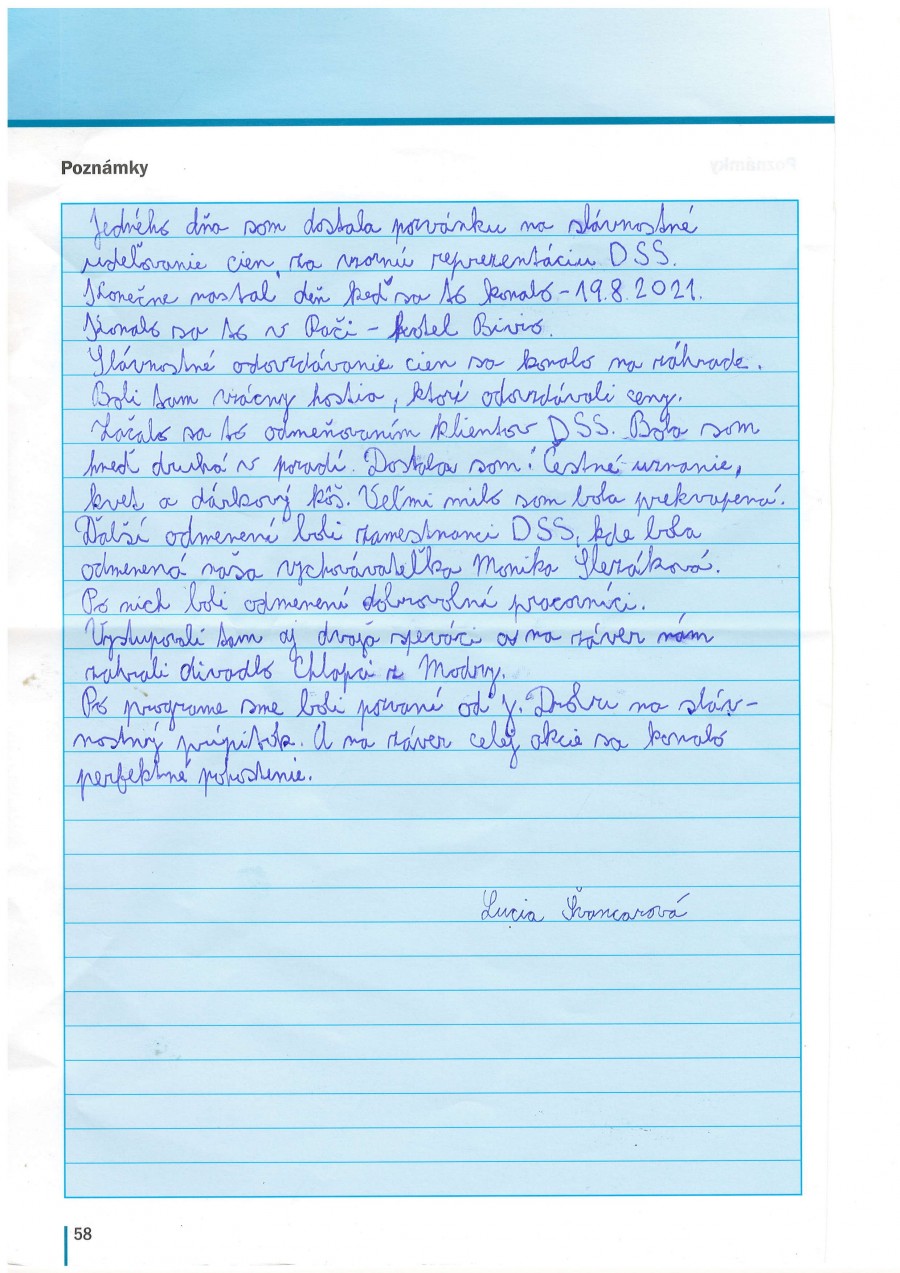 Poznámky
Jedného dňa som dostala pozvánku na slávnostné
udeľovanie cien, za vzornú reprezentáciu DSS.
Konečne nastal deň keď sa to konalo - 19.8.2021.
Konalo sa to v Rači - hotel Bivio.
Slávnostné odovzdávanie cien sa konalo na záhrade.
Boli tam vzácny hostia, ktorí odovzdávali ceny.
Začalo sa to odmeňovaním klientov DSS. Bola som
hneď druhá v poradí. Dostala som: Čestné uznanie,
kvet a dárkový kôš. Veľmi milo som bola prekvapená.
Ďalší odmenení boli zamestnanci DSS, kde bola
odmenená naša vychovávateľka Monika Slezáková.
Po nich boli odmenení dobrovolná pracovníci.
Vystupovali tam aj dvaja speváci a na záver nám
zahrali divadlo Chlapci z Modry.
Po programe sme boli pozvaní od J. Drobu na sláv-
nostný prípitok. A na záver celej akcie sa konalo
perfektné pohostenie.
Lucia Švancarová
58